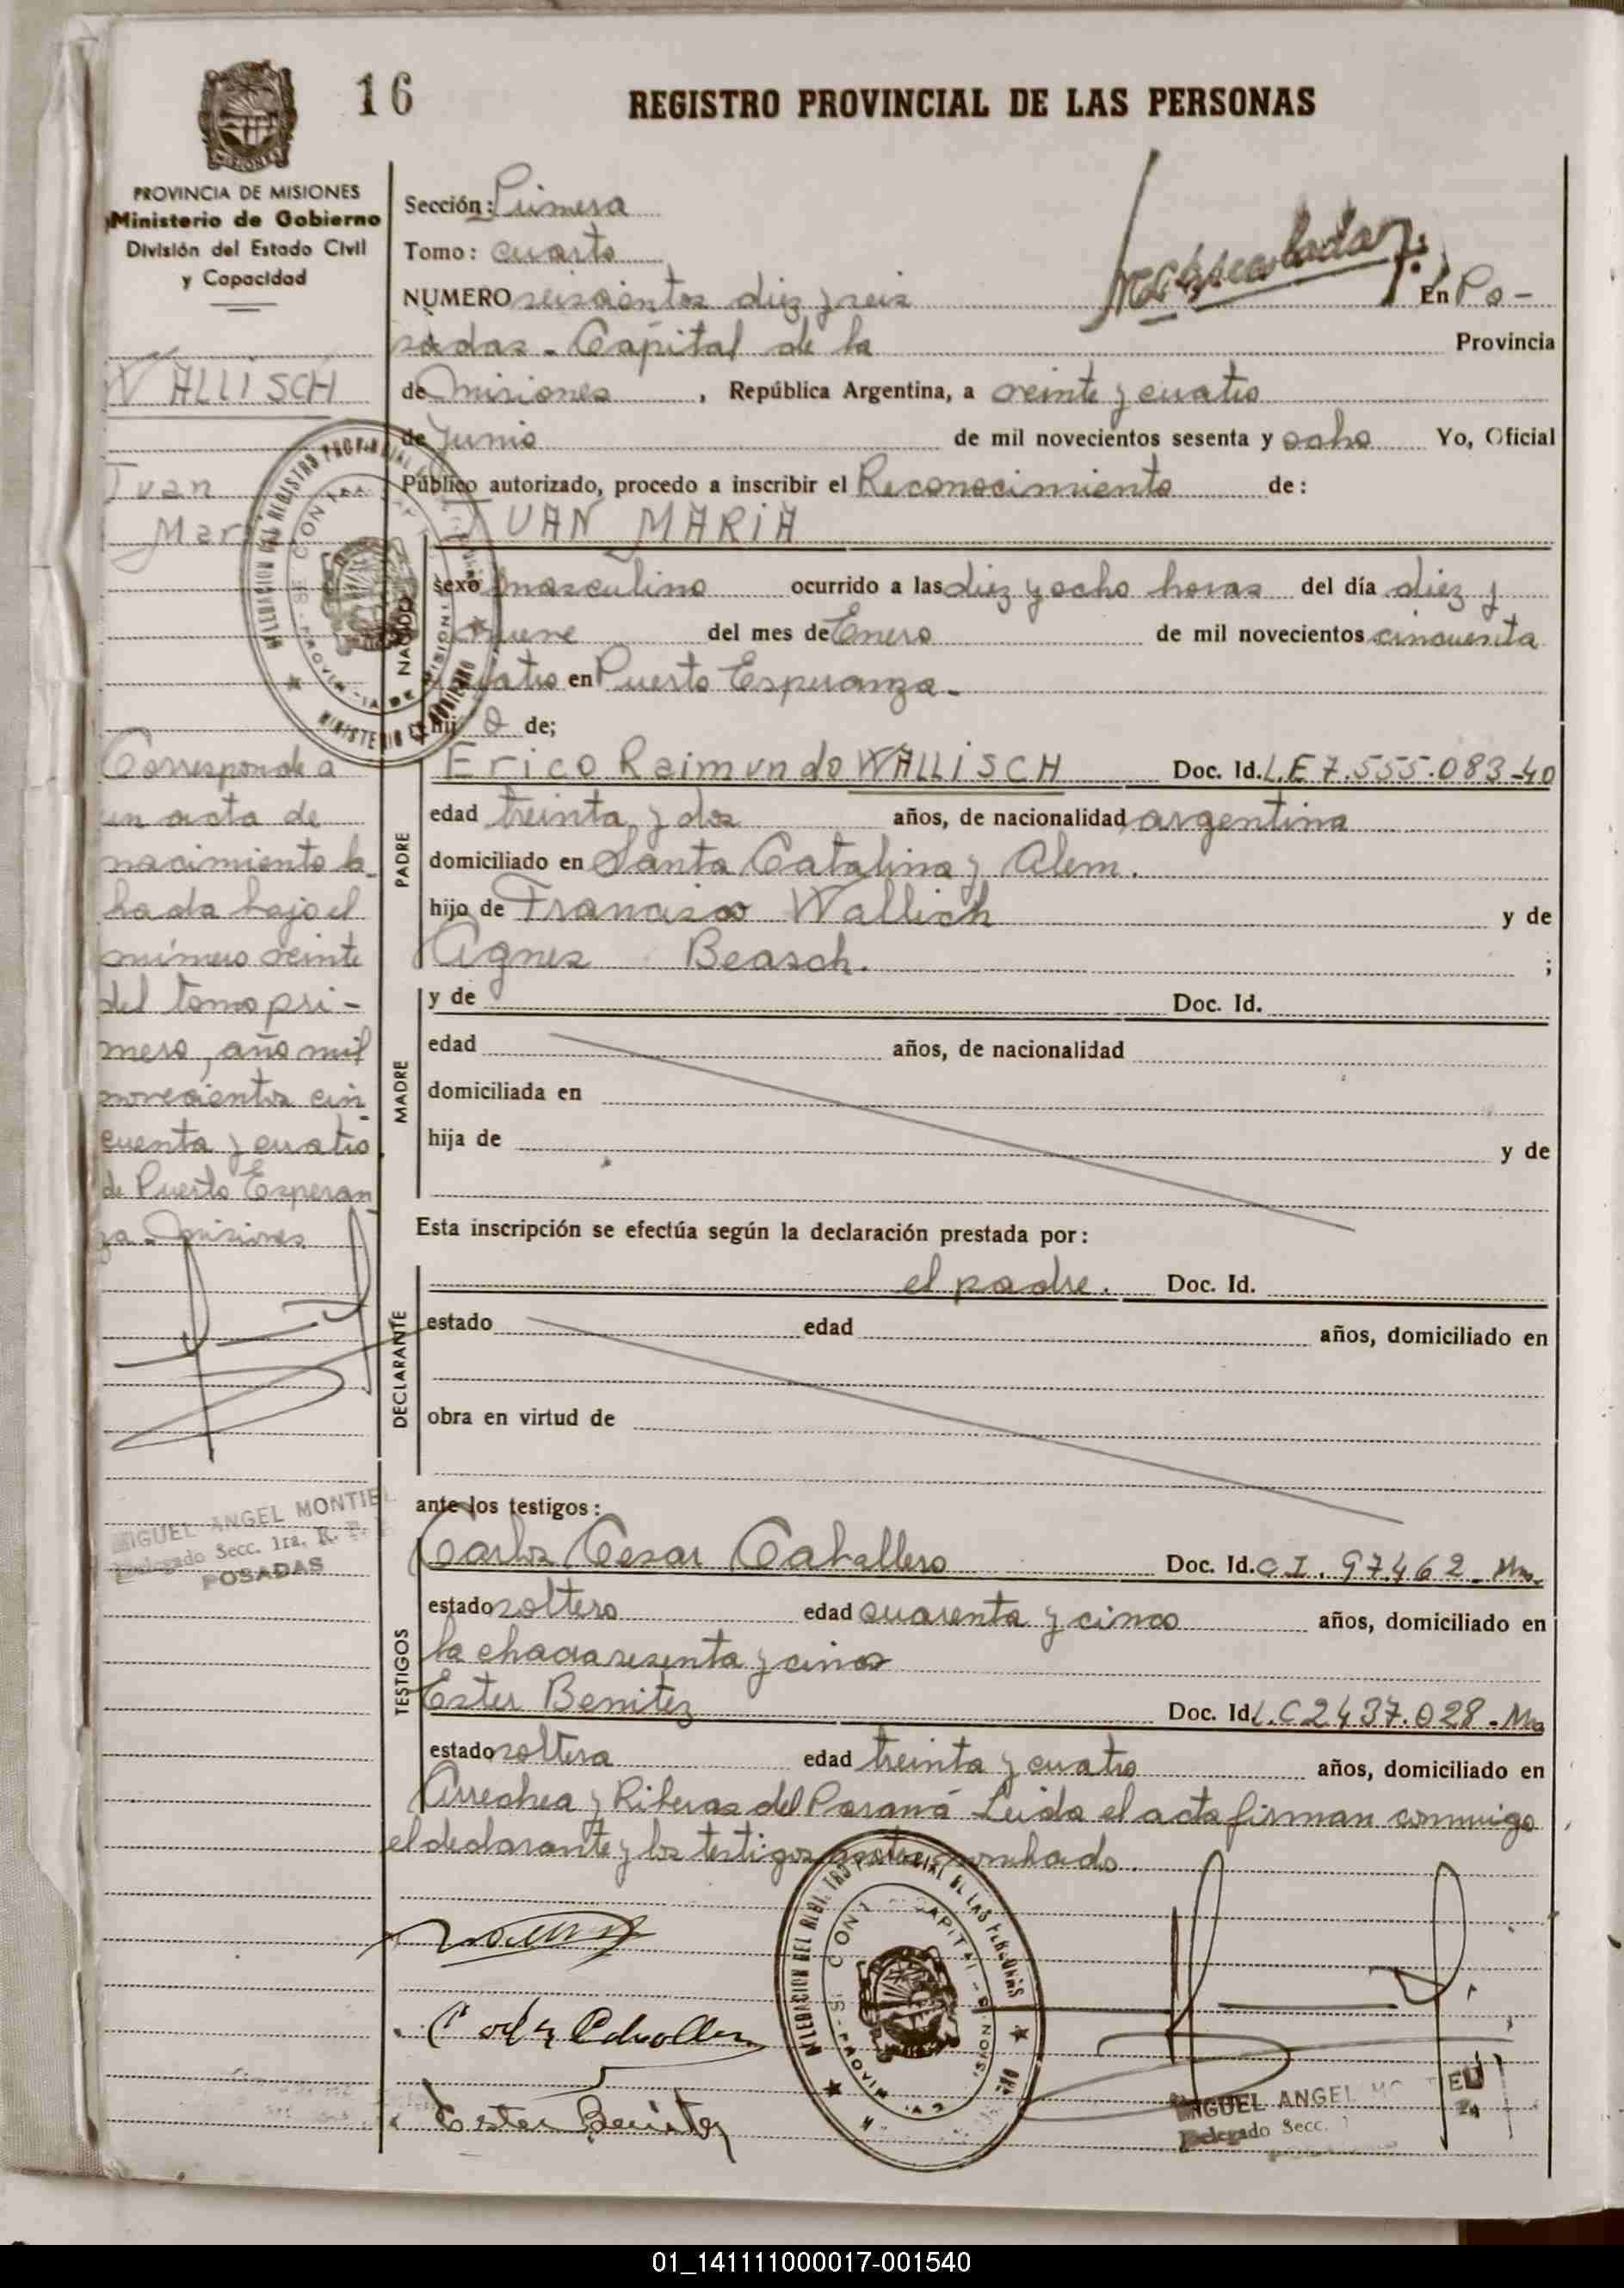 16
REGISTRO PROVINCIAL DE LAS PERSONAS
PROVINCIA DE MISIONES
Ministerio de Gobierno
División del Estado Civil
y Capacidad
WALLISCH
Juan
Mar
Corresponde a
un acta de
nacimiento la
brada bajo el
número veinte
del tomo pri-
mero, año mil
novecientos cin
cuenta y cuatro
de Puerto Esperan
za - Misiones
MIGUEL ANGEL MONTIEL
Delegado Secc. 1ra. R. P.
POSADAS
Sección: Primera
Tomo: cuarto
NUMERO seiscientos diez y seis En Po-
sadas - Capital de la Provincia
de Misiones, República Argentina, a veinte y cuatro
de Junio de mil novecientos sesenta y ocho Yo, Oficial
Público autorizado, procedo a inscribir el Reconocimiento de:
JUAN MARIA
NACIDO
sexo masculino ocurrido a las diez y ocho horas del día diez y
nueve del mes de Enero de mil novecientos cincuenta
cuatro en Puerto Esperanza -
hij o de;
PADRE
Erico Raimundo WALLISCH Doc. Id. L.E 7.555.083-40
edad treinta y dos años, de nacionalidad argentina
domiciliado en Santa Catalina y Alem.
hijo de Francisco Wallich y de
Agnes Beasch. ;
MADRE
y de Doc. Id.
edad años, de nacionalidad
domiciliada en
hija de y de
Esta inscripción se efectúa según la declaración prestada por:
DECLARANTE
el padre. Doc. Id.
estado edad años, domiciliado en
obra en virtud de
ante los testigos:
TESTIGOS
Carlos Cesar Caballero Doc. Id. C.I. 97462 - Mns.
estado soltero edad cuarenta y cinco años, domiciliado en
la chacra sesenta y cinco
Ester Benitez Doc. Id L.C 2.437.028 - Mns
estado soltera edad treinta y cuatro años, domiciliado en
Arrechea y Riberas del Paraná Leida el acta firman conmigo
el declarante y los testigos
Ester Benitez
MIGUEL ANGEL MONTIEL
Delegado Secc. 1
01_141111000017-001540